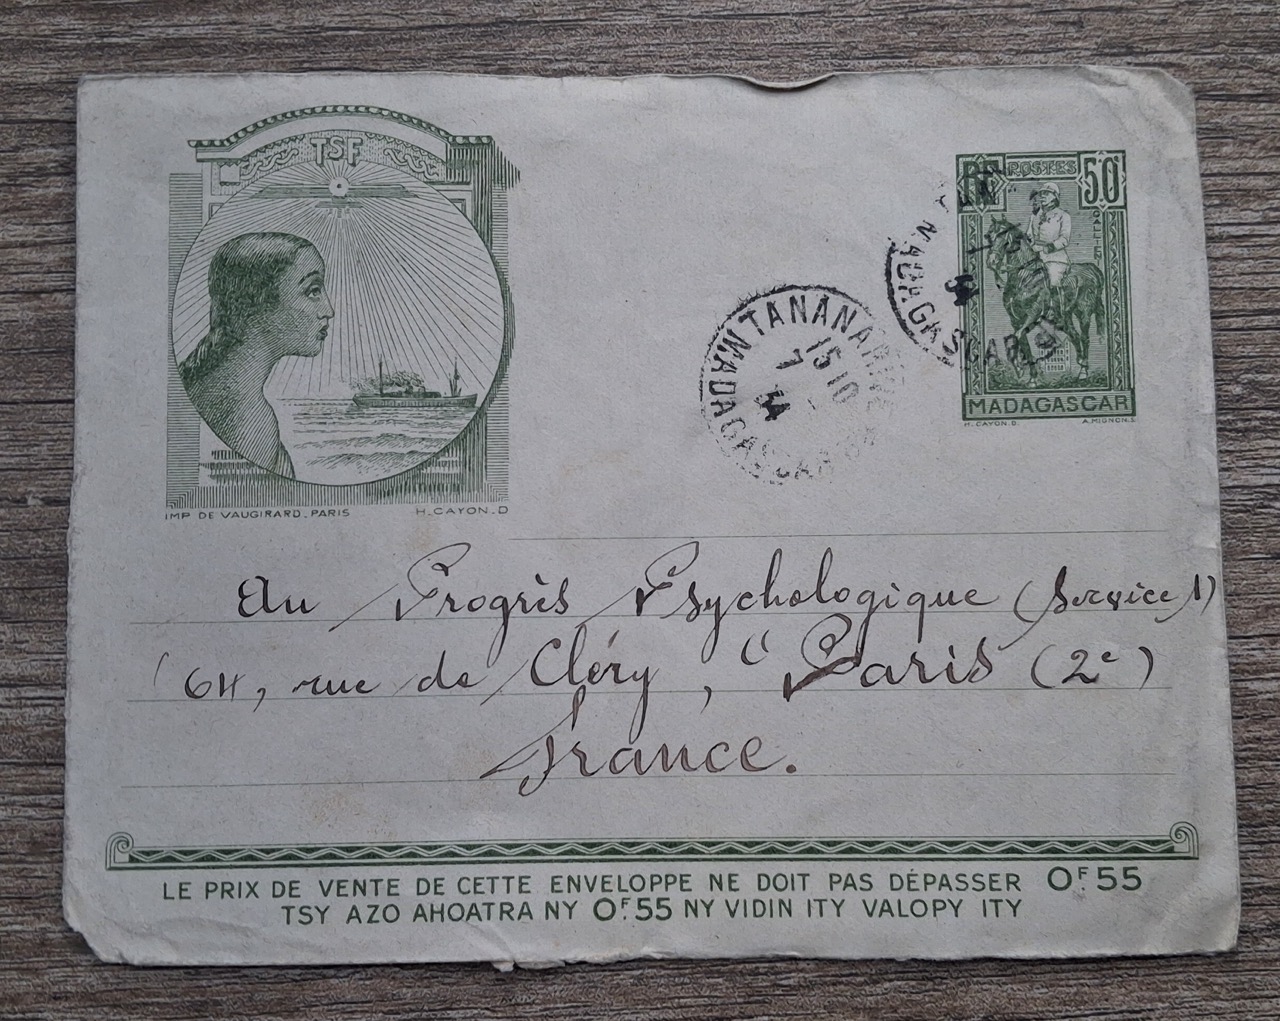 TSF
RF POSTES 50c
GALLIENI
MADAGASCAR
H. CAYON. D. A. MIGNON. S.
TANANARIVE
15 10
7 - 34
MADAGASCAR
TANANARIVE
MADAGASCAR
IMP DE VAUGIRARD. PARIS H. CAYON. D
Au Progrès Psychologique (Service A)
64, rue de Cléry, Paris (2e)
France.
LE PRIX DE VENTE DE CETTE ENVELOPPE NE DOIT PAS DÉPASSER 0F.55
TSY AZO AHOATRA NY 0F.55 NY VIDIN ITY VALOPY ITY